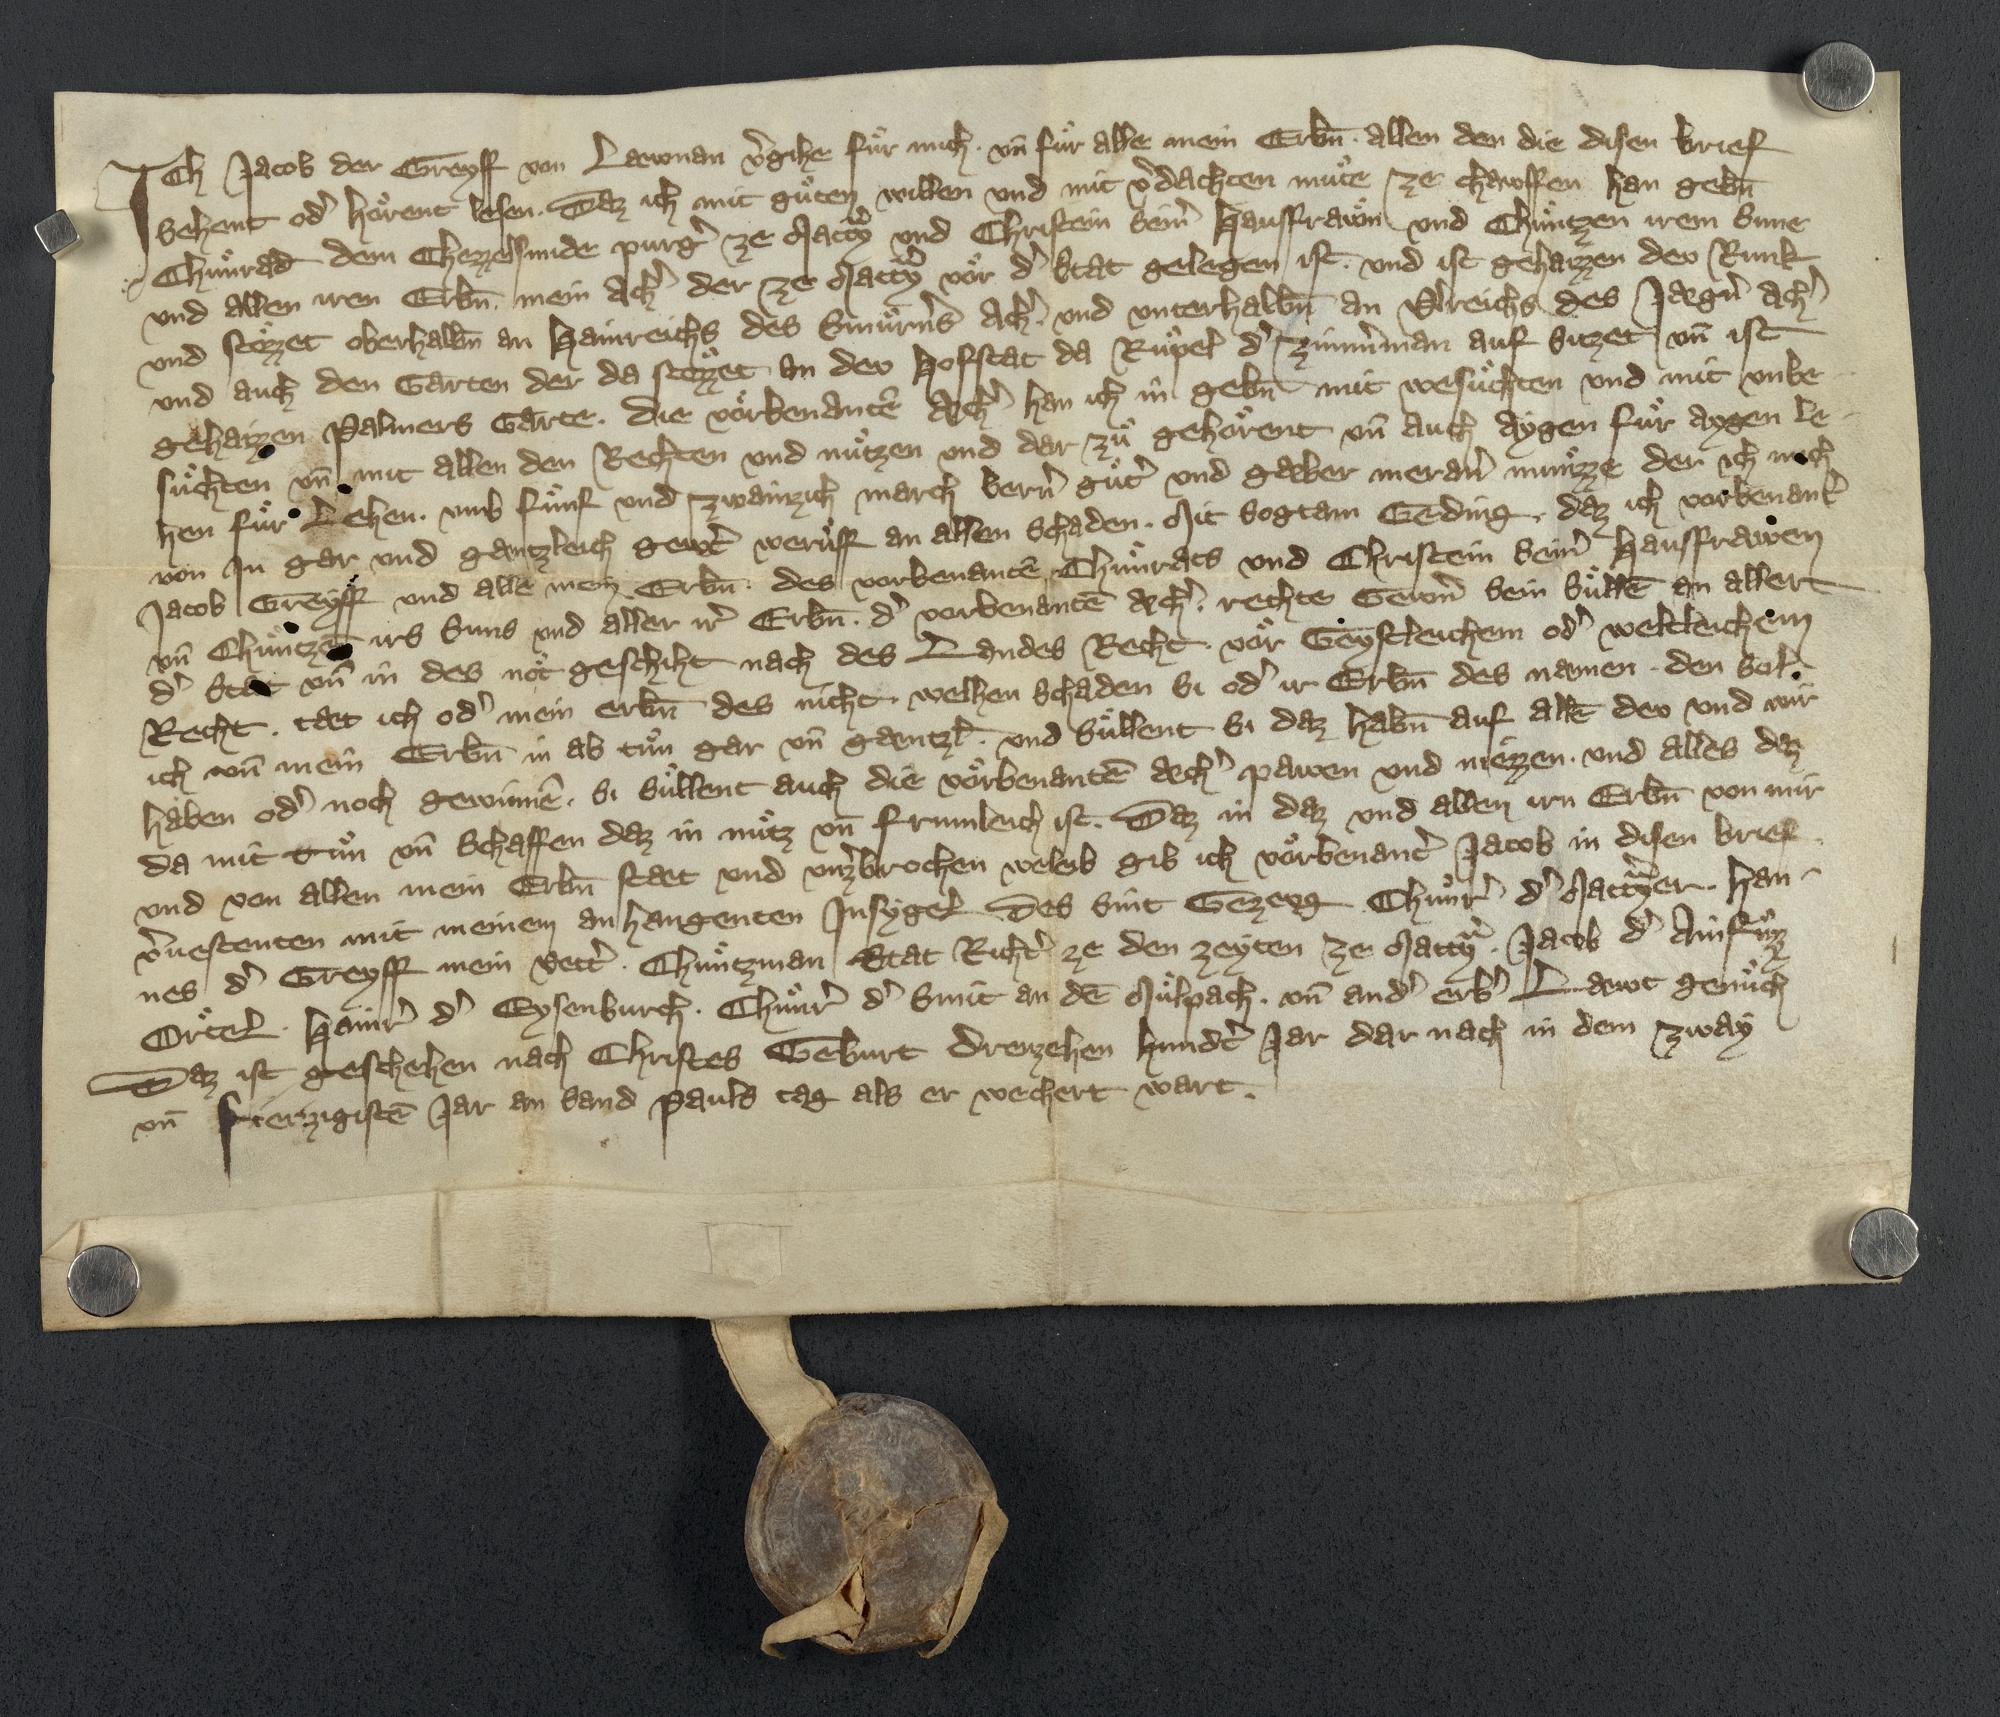 Ich Jacob der Greyff von Laewnan v̾gihe fuͤr mich · vn̄ fuͤr alle mein Erbn̄ · allen den die disen brief
sehent od̾ hoͤrent lesen · Daz ich mit guͤten willen vnd mit v̾dachten muͤte ze chawffen han gebn̄
Chuͦnrad dem Chezzelsmide purg̾ ze Matr̾y vnd Christein sein̾ Hausfrawͦn vnd Chuͤntzen irem Sune
vnd allen iren Erbn̄ · mein Ach̾ der ze Matr̾y vor d̾ Stat gelegen ist · vnd ist gehaizzen der Runk
vnd stoͤzzet oberhalbn̄ an Hainreichs des Smuͤrn̾s Ach̾ · vnd vnterhalbn̄ an Vlreichs des Jaegn̾ Ach̾
vnd auch den Garten der da stoͤzzet an der Hofstat da Ruͤpel d̾ zimm̾man auf sitzet vn̄ ist
gehaizzen Palmers Garte · die voͤrbenantē Aech̾ han ich in gebn̄ mit wesuͤchten vnd mit vnbe
suͤchten vn̄ mit allen den Rechten vnd nuͤtzen vnd dar zuͤ gehoͤrent vn̄ auch aygen fuͤr aygen le
hen fuͤr Lehen · vmb fuͤnf vnd zwainzich march bern̾ guͤt̾ vnd gaeber meran̾ muͤnzze der ich mich
von In gar vnd gaentzleich gewert weruͤff an allen schaden · Mit sogtam Geding · daz ich vorbenant̾
Jacob Greyff vnd alle mein Erbn̄ · des vorbenantē Chuͦnrats vnd Christein sein̾ Hausfrawen
vn̄ Chuͤntzen irs Suns vnd aller ir̾ Erbn̄ · d̾ vorbenantē Aech̾ · rechte Gewern̾ sein suͤllē an allert
d̾ Stat vn̄ in des not geschiht nach des Landes Recht · vor Geystleichem od̾ weltleichem
Recht · taet ich od̾ mein erbn̄ des nicht · welhen schaden si od̾ ir Erbn̄ des namen · den sol
ich vn̄ mein Erbn̄ in ab tuͤn gar vn̄ gaentzl̾ · vnd suͤllent si daz habn̄ auf allē dev vnd wir
haben od̾ noch gewinnē · si suͤllent auch die voͤrbenantē Aech̾ pawen vnd niezzen · vnd alles daz
da mit tuͤn vn̄ schaffen daz in nuͤtz vn̄ frumleich ist · Daz in daz vnd allen irn Erbn̄ von mir
vnd von allen mein Erbn̄ staet vnd vnz̾brochen weleib gib ich voͤrbenant̾ Jacob in disen brief
v̾uestenten mit meinem anhangenten Insygel · Des sint Gezewg Chuͦnr̾ d̾ Matr̾yer · Han
nes d̾ Greyff mein vett̾ · Chuͤntzman Stat Richt̾ ze den zeyten ze Matr̾y · Jacob d̾ Ainfuͤzz
Oͤrtel · Hainr̾ d̾ Eysenburch · Chuͦnr̾ d̾ Smit an dē Muͤlpach · vn̄ and̾ erb̾ Laewt genuͤch
Daz ist geschehen nach Christes Geburt Drewzehen hundt̾ Jar dar nach in dem zway
vn̄ fierzigistē Jar an sand Pauls tag als er wechert wart ·